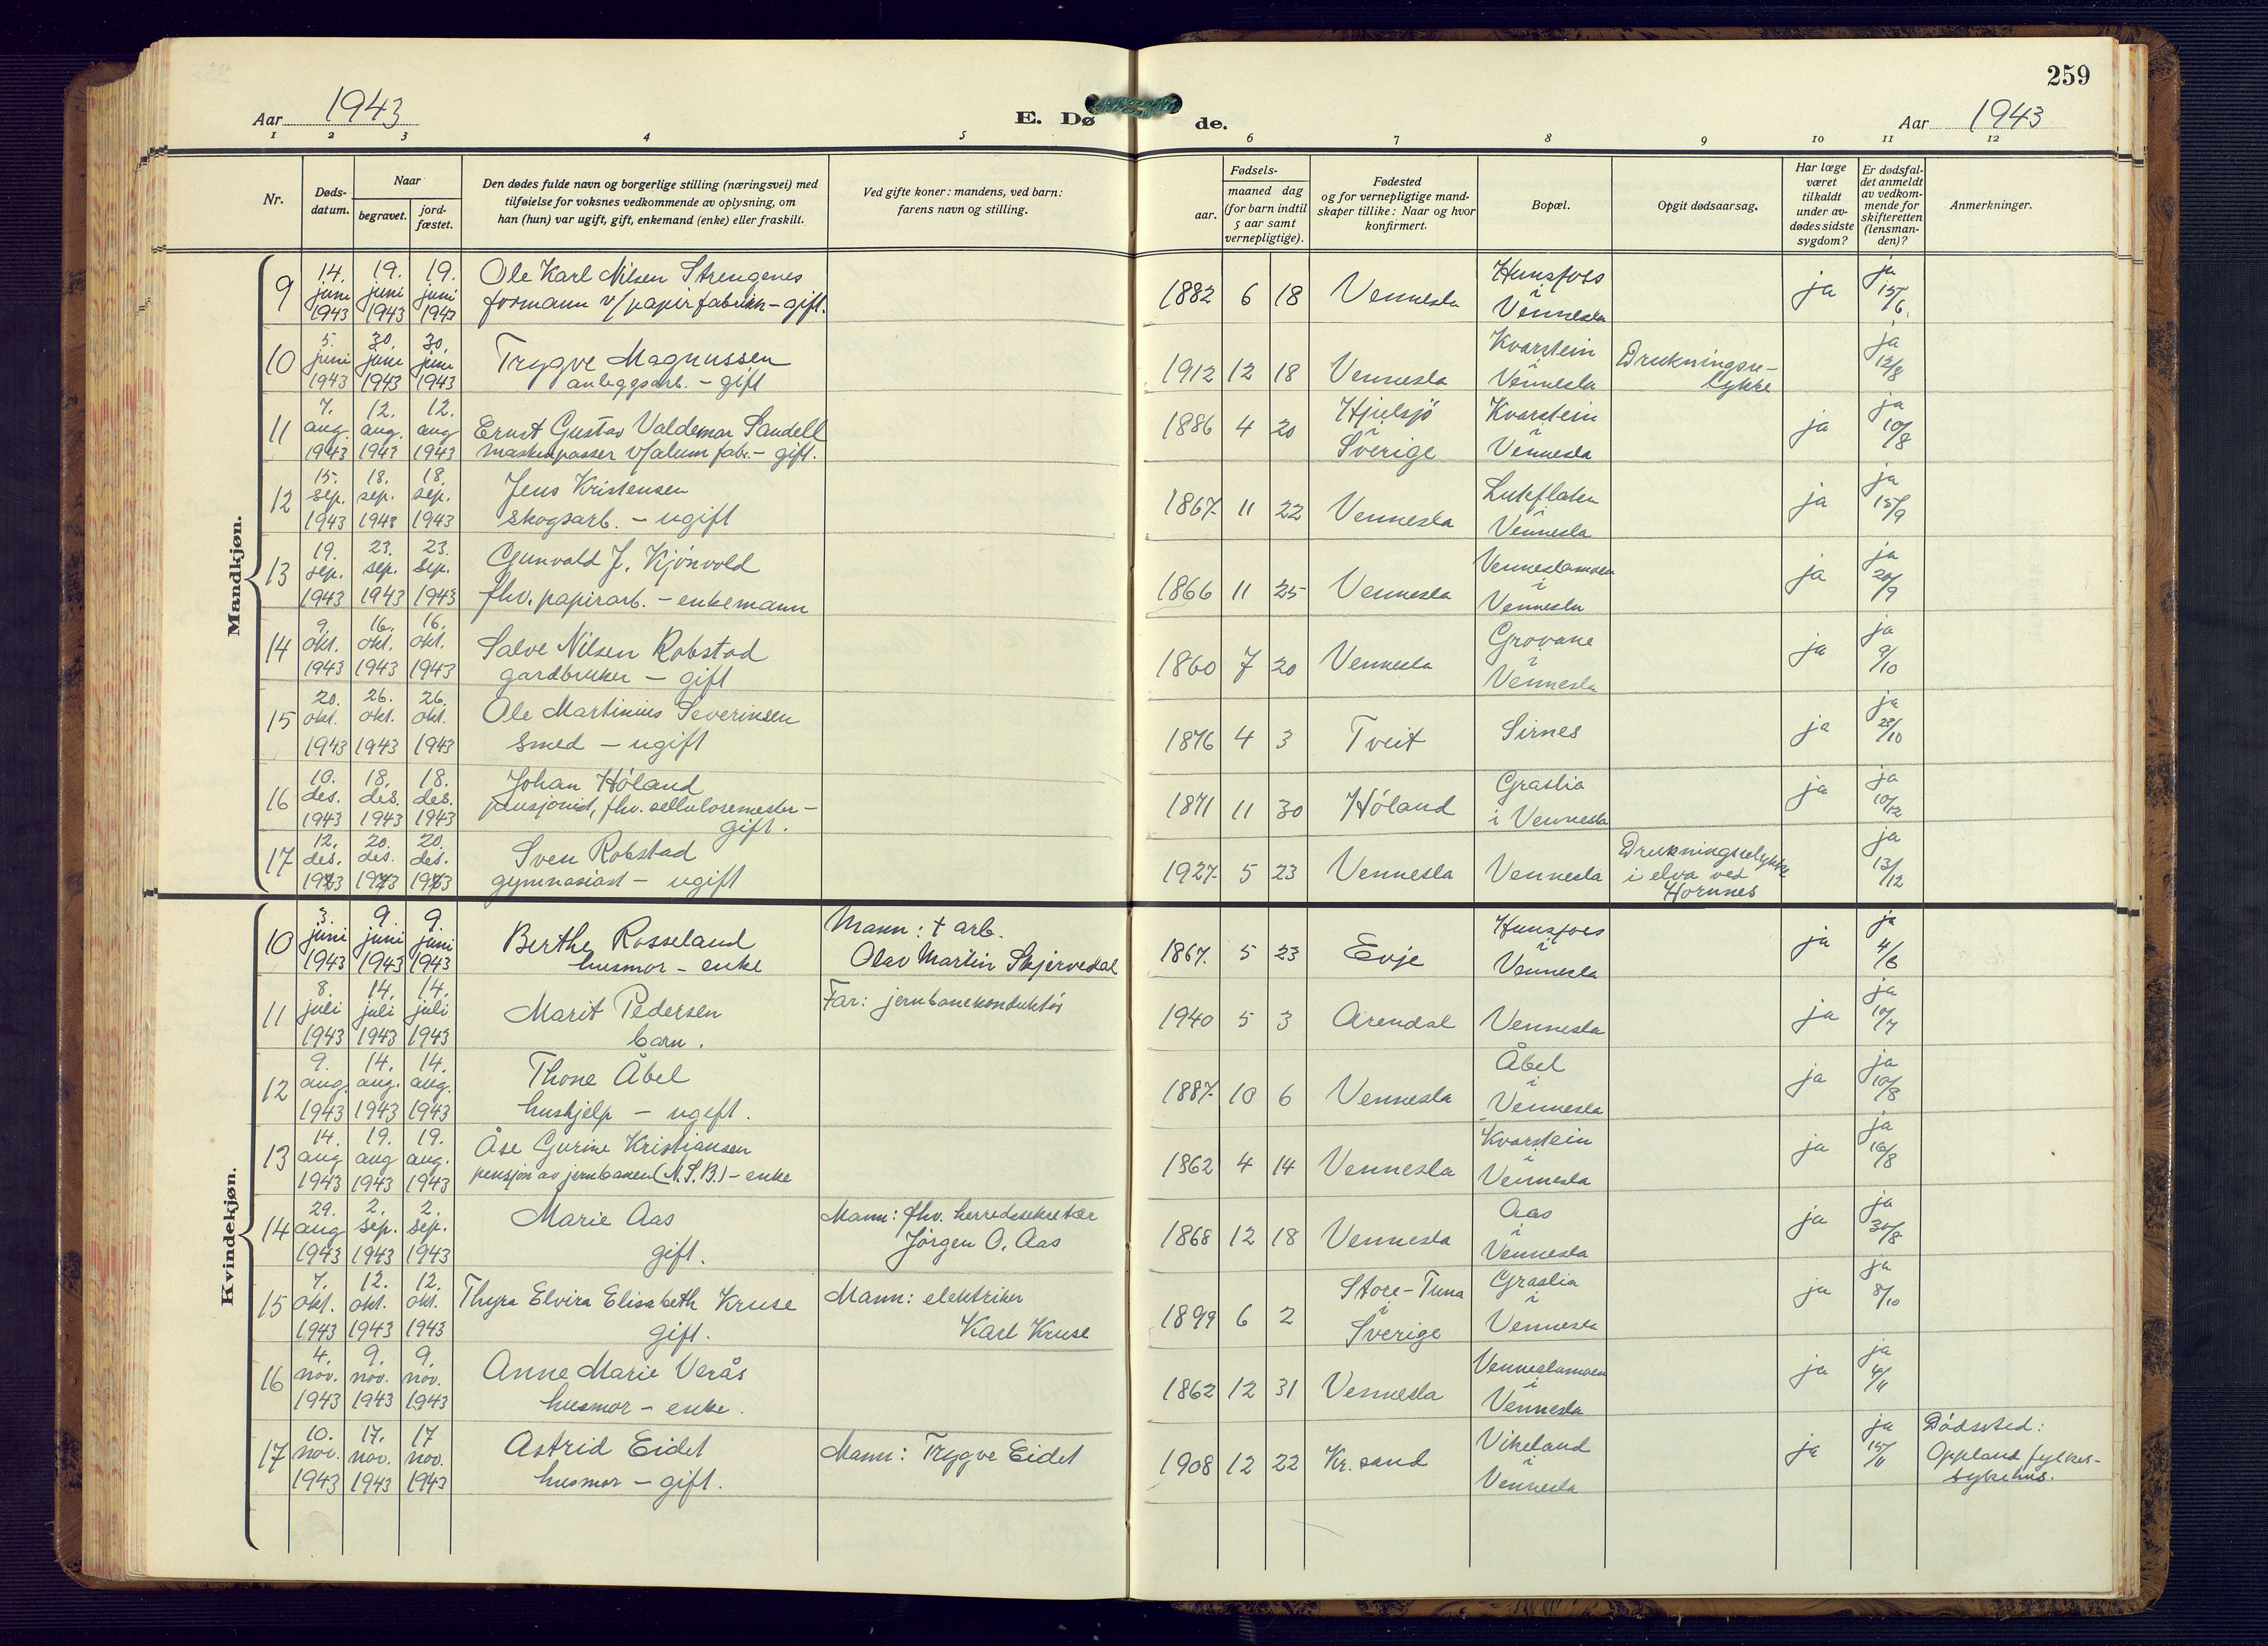 259
Aar 1943
E. Dø
de.
Aar 1943
1 2 3 4 5 6 7 8 9 10 11 12
Nr.
Døds-
datum.
Naar
begravet.
jord-
fæstet.
Den dødes fulde navn og borgerlige stilling (næringsvei) med
tilføielse for voksnes vedkommende av oplysning, om
han (hun) var ugift, gift, enkemand (enke) eller fraskilt.
Ved gifte koner: mandens, ved barn:
farens navn og stilling.
Fødsels-
aar.
maaned dag
(for barn indtil
5 aar samt
vernepligtige).
Fødested
og for vernepligtige mand-
skaper tillike: Naar og hvor
konfirmert.
Bopæl.
Opgit dødsaarsag.
Har læge
været
tilkaldt
under av-
dødes sidste
sygdom?
Er dødsfal-
det anmeldt
av vedkom-
mende for
skifteretten
(lensman-
den)?
Anmerkninger.
Mandkjøn.
9 14. juni 1943 19. juni 1943 19. juni 1943 Ole Karl Nilsen Strengenes
formann v/papirfabrikk - gift. 1882 6 18 Vennesla Hunsfoss i Vennesla ja ja 15/6.
10 5. juni 1943 30. juni 1943 30. juni 1943 Trygve Magnussen
anleggsarb. - gift 1912 12 18 Vennesla Kvarstein i Vennesla Drukningsu-
lykke ja 12/8
11 7. aug. 1943 12. aug. 1943 12. aug 1943 Ernst Gustav Valdemar Sandell
maskinpasser v/alum fabr. - gift. 1886 4 20 Hjulsjö i Sverige Kvarstein i Vennesla ja ja 10/8
12 15. sep. 1943 18. sep. 1943 18. sep. 1943 Jens Kristensen
skogsarb. - ugift 1867 11 22 Vennesla Luteflaten i Vennesla ja ja 15/9
13 19. sep. 1943 23. sep. 1943 23. sep. 1943 Gunvald J. Kjönvold
fhv. papirarb. - enkemann 1866 11 25 Vennesla Venneslamoen i Vennesla ja ja 20/9
14 9. okt. 1943 16. okt. 1943 16. okt. 1943 Salve Nilsen Robstad
gardbruker - gift 1860 7 20 Vennesla Grovane i Vennesla ja ja 9/10
15 20. okt. 1943 26. okt. 1943 26. okt. 1943 Ole Martinius Severinsen
smed - ugift 1876 4 3 Tveit Sirnes ja ja 23/10
16 10. des. 1943 18. des. 1943 18. des. 1943 Johan Höland
pensjonist, fhv. cellulosemester -
gift. 1871 11 30 Höland Graslia i Vennesla ja ja 10/12
17 12. des. 1943 20. des. 1943 20. des. 1943 Sven Robstad
gymnasiast - ugift 1927 5 23 Vennesla Vennesla Drukningsulykke
i elva ved
Hornnes ja 13/12
Kvindekjøn.
10 3. juni 1943 9. juni 1943 9. juni 1943 Berthe Rosseland
husmor - enke Mann: † arb.
Olav Martin Skjervedal 1867. 5 23 Evje Hunsfoss i Vennesla ja ja 4/6
11 8. juli 1943 14. juli 1943 14. juli 1943 Marit Pedersen
barn. Far: jernbanekonduktör 1940 5 3 Arendal Vennesla ja ja 10/7
12 9. aug. 1943 14. aug. 1943 14. aug. 1943 Thone Åbel
hushjelp - ugift. 1887 10 6 Vennesla Åbel i Vennesla ja ja 10/8
13 14. aug 1943 19. aug 1943 19. aug. 1943 Åse Gurine Kristiansen
pensjon av jernbanen (N.S.B.) - enke 1862 4 14 Vennesla Kvarstein i Vennesla ja ja 16/8
14 29. aug 1943 2. sep. 1943 2. sep. 1943 Marie Aas
gift. Mann: fhv. herredssekretær
Jörgen O. Aas 1868 12 18 Vennesla Aas i Vennesla ja ja 30/8
15 7. okt. 1943 12. okt. 1943 12. okt. 1943 Thyra Elvira Elisabeth Kruse
gift. Mann: elektriker
Karl Kruse 1899 6 2 Store-Tuna i Sverige Graslia i Vennesla ja ja 8/10
16 4. nov. 1943 9. nov. 1943 9. nov. 1943 Anne Marie Verås
husmor - enke. 1862 12 31 Vennesla Venneslamoen i Vennesla ja ja 4/11
17 10. nov. 1943 17. nov. 1943 17 nov. 1943 Astrid Eidet
husmor - gift. Mann: Trygve Eidet 1908 12 22 Kr. sand Vikeland i Vennesla ja ja 15/11 Dödssted:
Oppland fylkes-
sykehus.